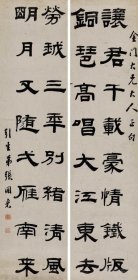 金門大兄大人正句
讓君千載豪情鐵版
銅琶高唱大江東去
勞越三年別緒清風
明月又隨弌雁南來
弟張國